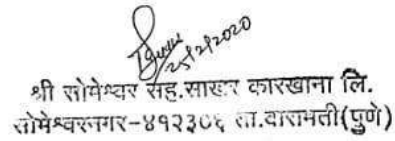 25/2/2020
श्री सोमेश्वर सह.साखर कारखाना लि.
सोमेश्वरनगर-४१२३०६ ता.बारामती(पुणे)